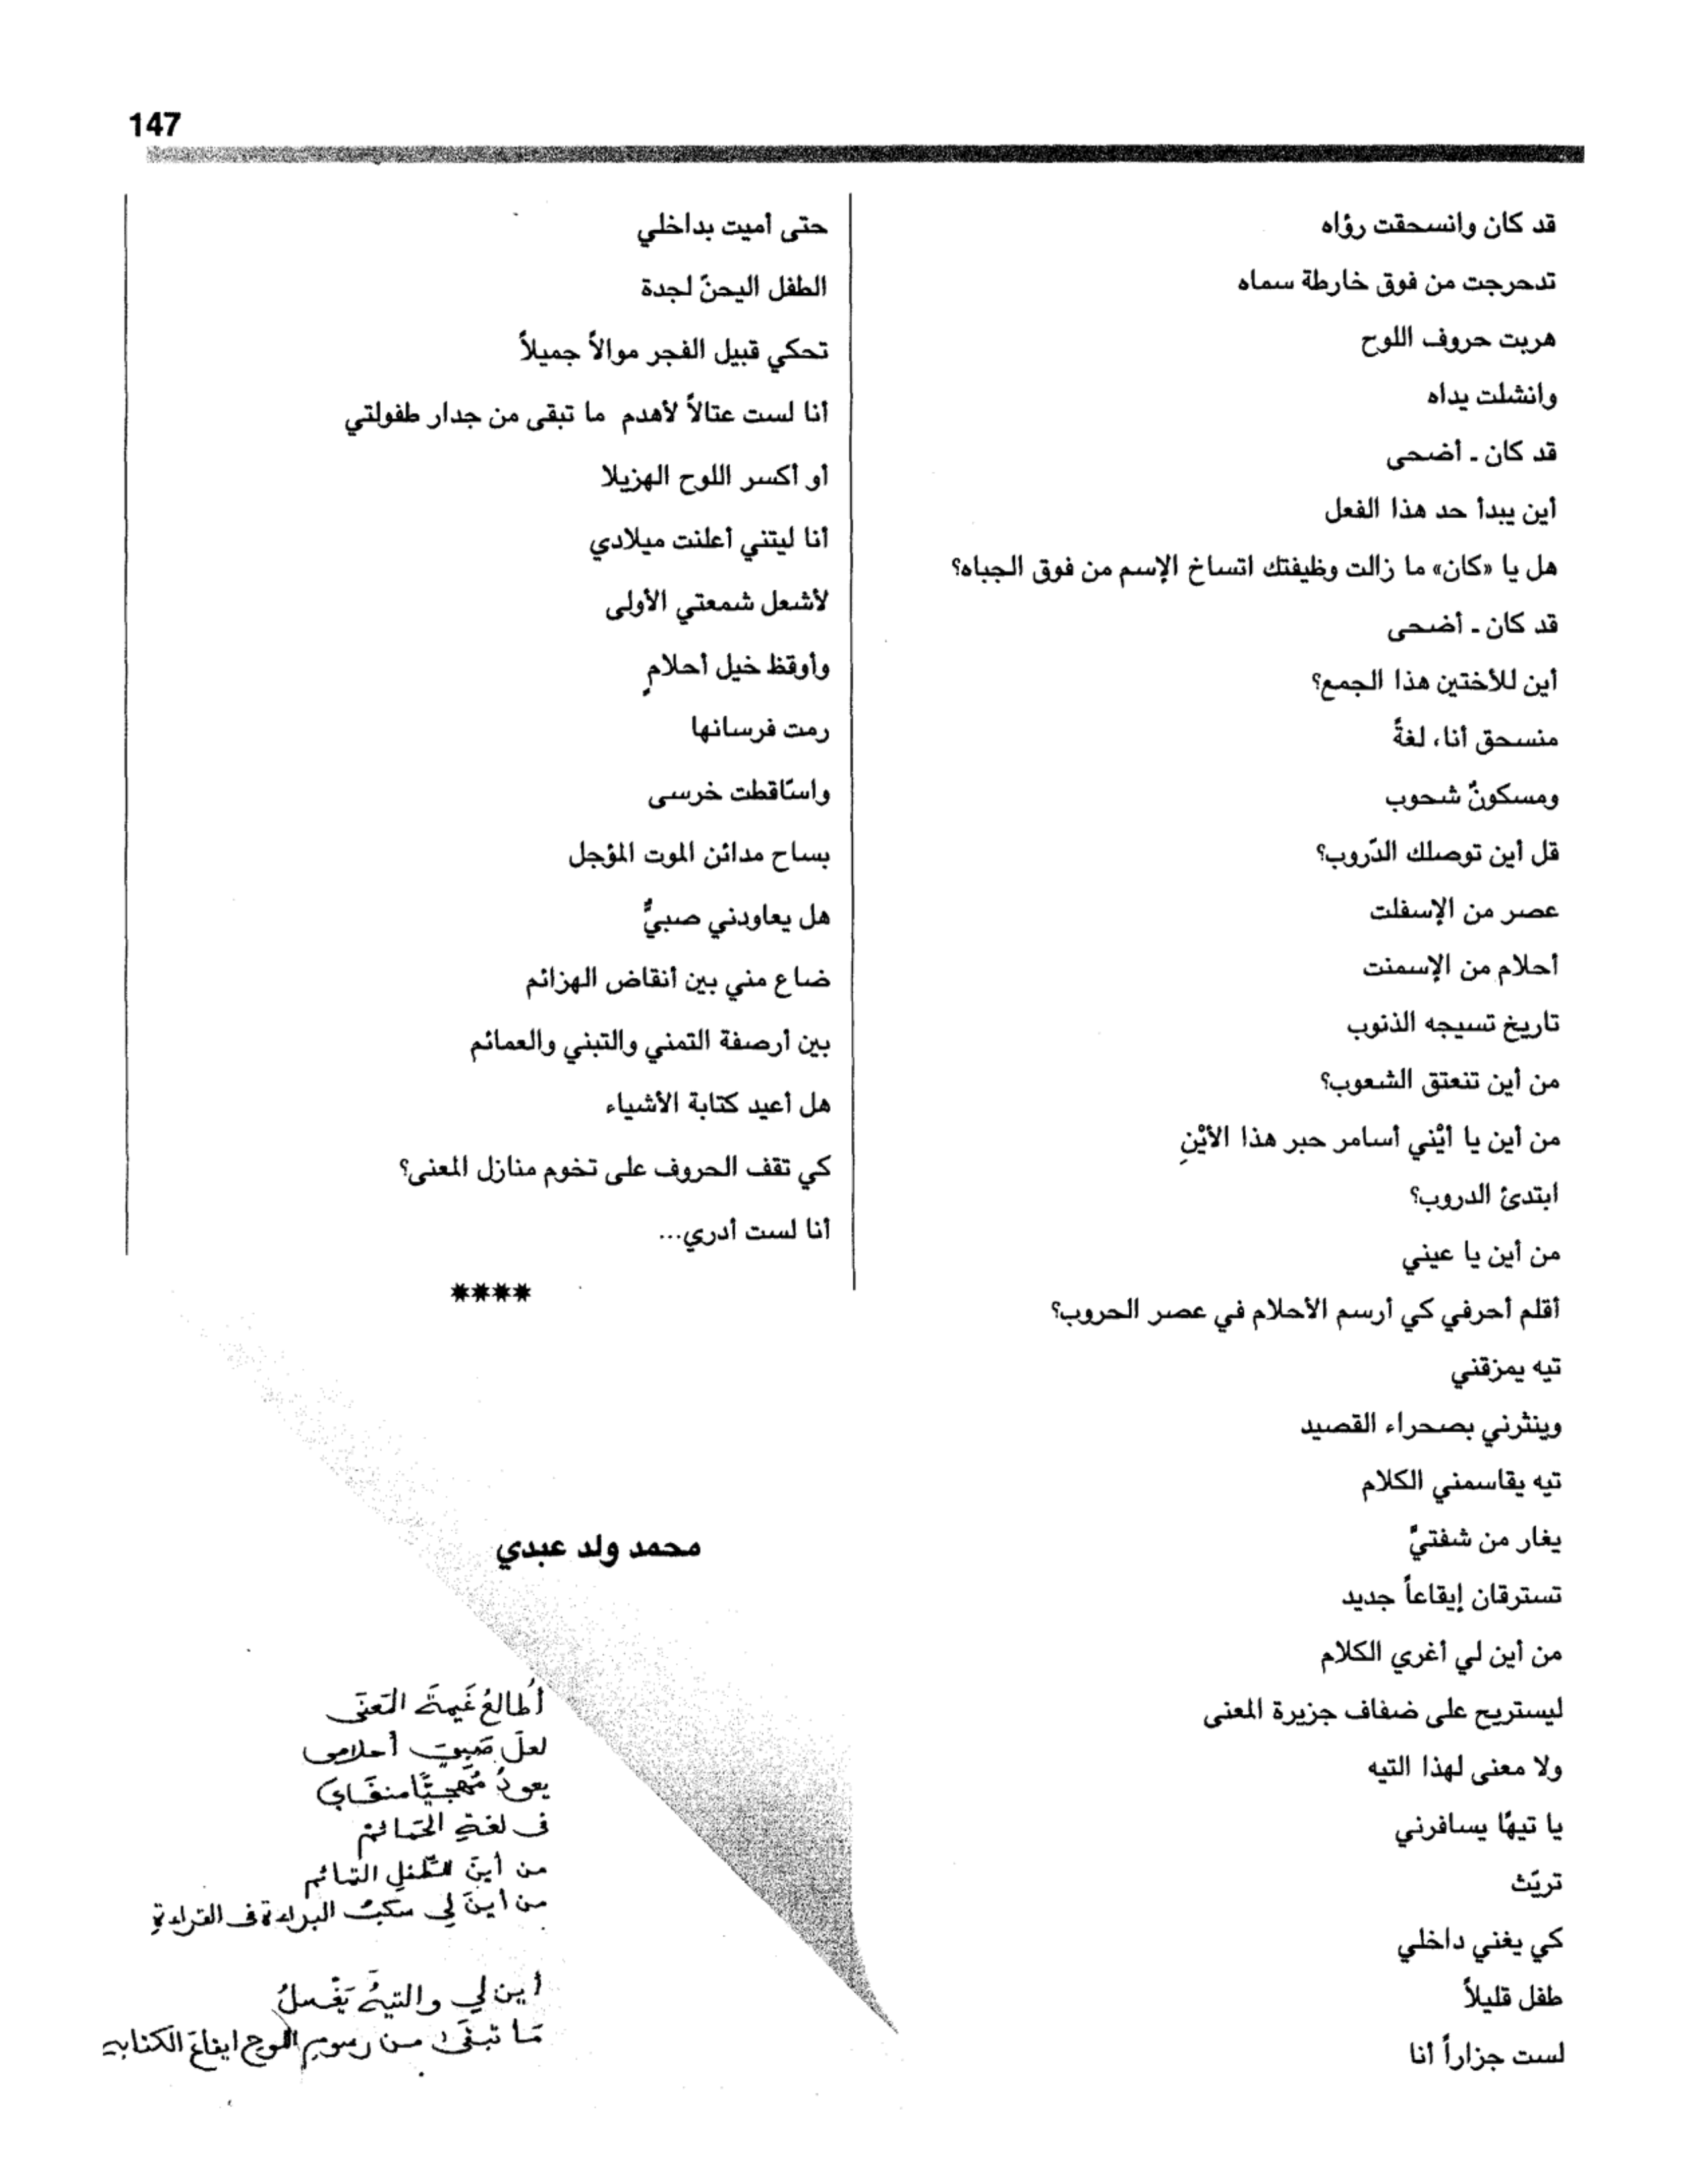 147
قد كان وانسحقت رؤاه
تدحرجت من فوق خارطة سماه
هربت حروف اللوح
وانشلت يداه
قد كان ـ أضحى
أين يبدأ حد هذا الفعل
هل يا «كان» ما زالت وظيفتك اتساخ الإسم من فوق الجباه؟
قد كان ـ أضحى
أين للأختين هذا الجمع؟
منسحق أنا، لغةً
ومسكونٌ شحوب
قل أين توصلك الدّروب؟
عصر من الإسفلت
أحلام من الإسمنت
تاريخ تسيجه الذنوب
من أين تنعتق الشعوب؟
من أين يا أيْني أسامر حبر هذا الأيْنِ
ابتدئ الدروب؟
من أين يا عيني
أقلم أحرفي كي أرسم الأحلام في عصر الحروب؟
تيه يمزقني
وينثرني بصحراء القصيد
تيه يقاسمني الكلام
يغار من شفتيَّ
تسترقان إيقاعاً جديد
من أين لي أغري الكلام
ليستريح على ضفاف جزيرة المعنى
ولا معنى لهذا التيه
يا تيهًا يسافرني
تريّث
كي يغني داخلي
طفل قليلاً
لست جزاراً أنا
حتى أميت بداخلي
الطفل اليحنّ لجدة
تحكي قبيل الفجر موالاً جميلاً
أنا لست عتالاً لأهدم ما تبقى من جدار طفولتي
أو أكسر اللوح الهزيلا
أنا ليتني أعلنت ميلادي
لأشعل شمعتي الأولى
وأوقظ خيل أحلامٍ
رمت فرسانها
واسّاقطت خرسى
بساح مدائن الموت المؤجل
هل يعاودني صبيٌّ
ضاع مني بين أنقاض الهزائم
بين أرصفة التمني والتبني والعمائم
هل أعيد كتابة الأشياء
كي تقف الحروف على تخوم منازل المعنى؟
أنا لست أدري...
****
محمد ولد عبدي
أُطالعُ غَيمةَ المَعنَى
لعلَ صَبِيَّ أحلامى
يعودُ مُهَجِّيًا منفَايَ
فى لغةِ الحَمائمْ
من أينَ للطّفلِ التمائم
من أينَ لِي سَكبُ البراءة فى القراءةِ
أين لِي والتيهُ يَغْسلُ
مَا تبقَى من رسومِ اللوح إيقاعَ الكتابه